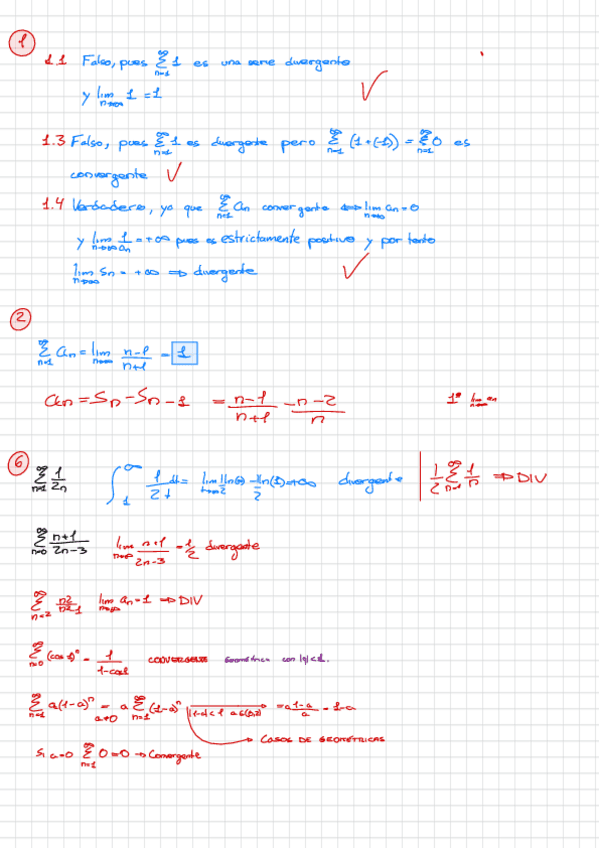 1
1.1 Falso, pues ∞Σn=1 1 es una serie divergente
y lim n→∞ 1 = 1
1.3 Falso, pues ∞Σn=1 1 es divergente pero ∞Σn=1 (1+(-1)) = ∞Σn=1 0 es
convergente
1.4 Verdadero, ya que ∞Σn=1 an convergente ⟺ lim n→∞ an = 0
y lim n→∞ 1/an = +∞ pues es estrictamente positivo y por tanto
lim n→∞ Sn = +∞ ⟹ divergente
2
∞Σn=1 an = lim n→∞ (n-1)/(n+1) = 1
an = Sn - Sn-1 = (n-1)/(n+1) - (n-2)/n 1º lim n→∞ an
6
∞Σn=1 1/2n ∫1^∞ 1/2t dt = lim 1/2 ln( ) - 1/2 ln(1) = +∞ divergente | 1/2 ∞Σn=1 1/n ⟹ DIV
∞Σn=0 (n+1)/(2n-3) lim n→∞ (n+1)/(2n-3) = 1/2 divergente
∞Σn=2 n2/n2-1 lim n→∞ an = 1 ⟹ DIV
∞Σn=0 (cos 1)^n = 1/(1-cos1) CONVERGENTE Geométrica con |q|<1.
∞Σn=1 a(1-a)^n = a≠0 a ∞Σn=1 (1-a)^n |1-a|<1 a∈(0,2) = a (1-a)/a = 1-a
CASOS DE GEOMÉTRICAS
Si a=0 ∞Σn=1 0 = 0 → Convergente